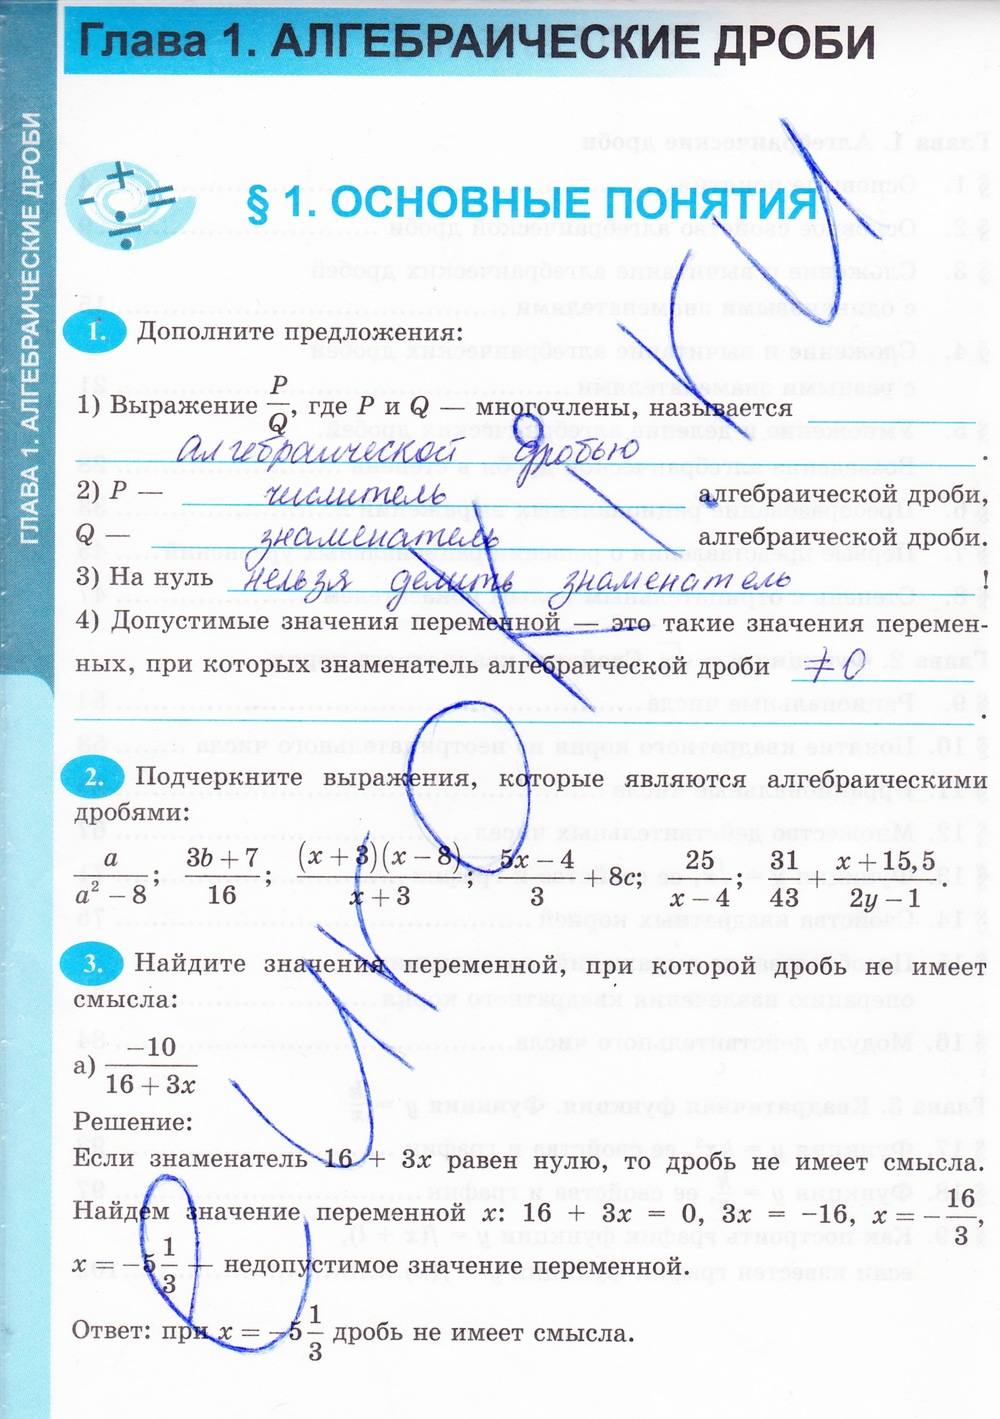 Глава 1. АЛГЕБРАИЧЕСКИЕ ДРОБИ
ГЛАВА 1. АЛГЕБРАИЧЕСКИЕ ДРОБИ
§ 1. ОСНОВНЫЕ ПОНЯТИЯ
1. Дополните предложения:
1) Выражение P/Q, где P и Q — многочлены, называется
алгебраической дробью.
2) P — числитель алгебраической дроби,
Q — знаменатель алгебраической дроби.
3) На нуль нельзя делить знаменатель !
4) Допустимые значения переменной — это такие значения перемен-
ных, при которых знаменатель алгебраической дроби ≠0
.
2. Подчеркните выражения, которые являются алгебраическими
дробями:
a/(a² − 8); (3b + 7)/16; (x + 3)(x − 8)/(x + 3); (5x − 4)/3 + 8c; 25/(x − 4); 31/43 + (x + 15,5)/(2y − 1).
3. Найдите значения переменной, при которой дробь не имеет
смысла:
а) −10/(16 + 3x)
Решение:
Если знаменатель 16 + 3x равен нулю, то дробь не имеет смысла.
Найдем значение переменной x: 16 + 3x = 0, 3x = −16, x = −16/3,
x = −5 1/3 — недопустимое значение переменной.
Ответ: при x = −5 1/3 дробь не имеет смысла.